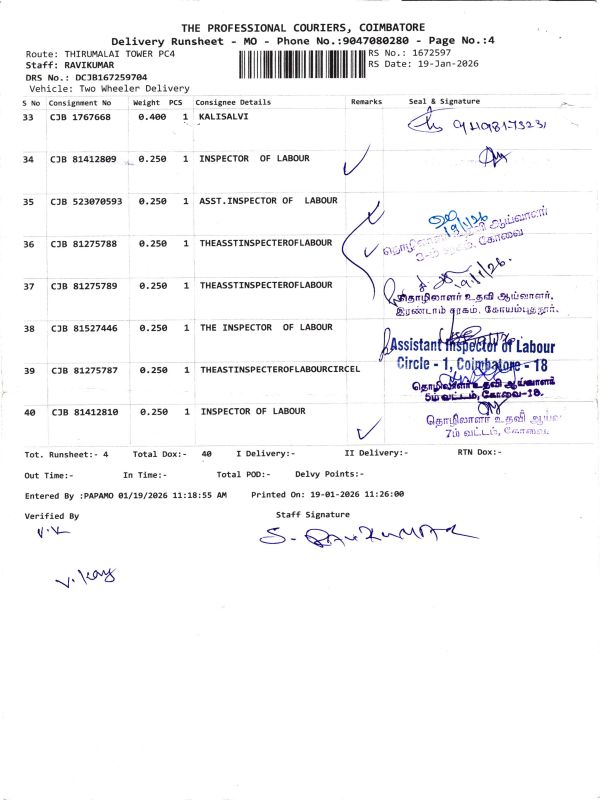 THE PROFESSIONAL COURIERS, COIMBATORE
Delivery Runsheet - MO - Phone No.:9047080280 - Page No.:4
Route: THIRUMALAI TOWER PC4
RS No.: 1672597
Staff: RAVIKUMAR
RS Date: 19-Jan-2026
DRS No.: DCJB167259704
Vehicle: Two Wheeler Delivery
S No Consignment No Weight PCS Consignee Details Remarks Seal & Signature
33 CJB 1767668 0.400 1 KALISALVI
34 CJB 81412809 0.250 1 INSPECTOR OF LABOUR
35 CJB 523070593 0.250 1 ASST.INSPECTOR OF LABOUR
19/1/26
தொழிலாளர் உதவி ஆய்வாளர்
36 CJB 81275788 0.250 1 THEASSTINSPECTEROFLABOUR
கோவை
37 CJB 81275789 0.250 1 THEASSTINSPECTEROFLABOUR
தொழிலாளர் உதவி ஆய்வாளர்.
இரண்டாம் சரகம், கோயம்புதூர்.
38 CJB 81527446 0.250 1 THE INSPECTOR OF LABOUR
Assistant Inspector of Labour
Circle - 1, Coimbatore - 18
39 CJB 81275787 0.250 1 THEASTINSPECTEROFLABOURCIRCEL
தொழிலாளர் உதவி ஆய்வாளர்
5ம் வட்டம், கோவை-18.
40 CJB 81412810 0.250 1 INSPECTOR OF LABOUR
தொழிலாளர் உதவி ஆய்வ
7ம் வட்டம், கோவை.
Tot. Runsheet:- 4 Total Dox:- 40 I Delivery:- II Delivery:- RTN Dox:-
Out Time:- In Time:- Total POD:- Delvy Points:-
Entered By :PAPAMO 01/19/2026 11:18:55 AM Printed On: 19-01-2026 11:26:00
Verified By Staff Signature
V.K
S. RAVIKUMAR